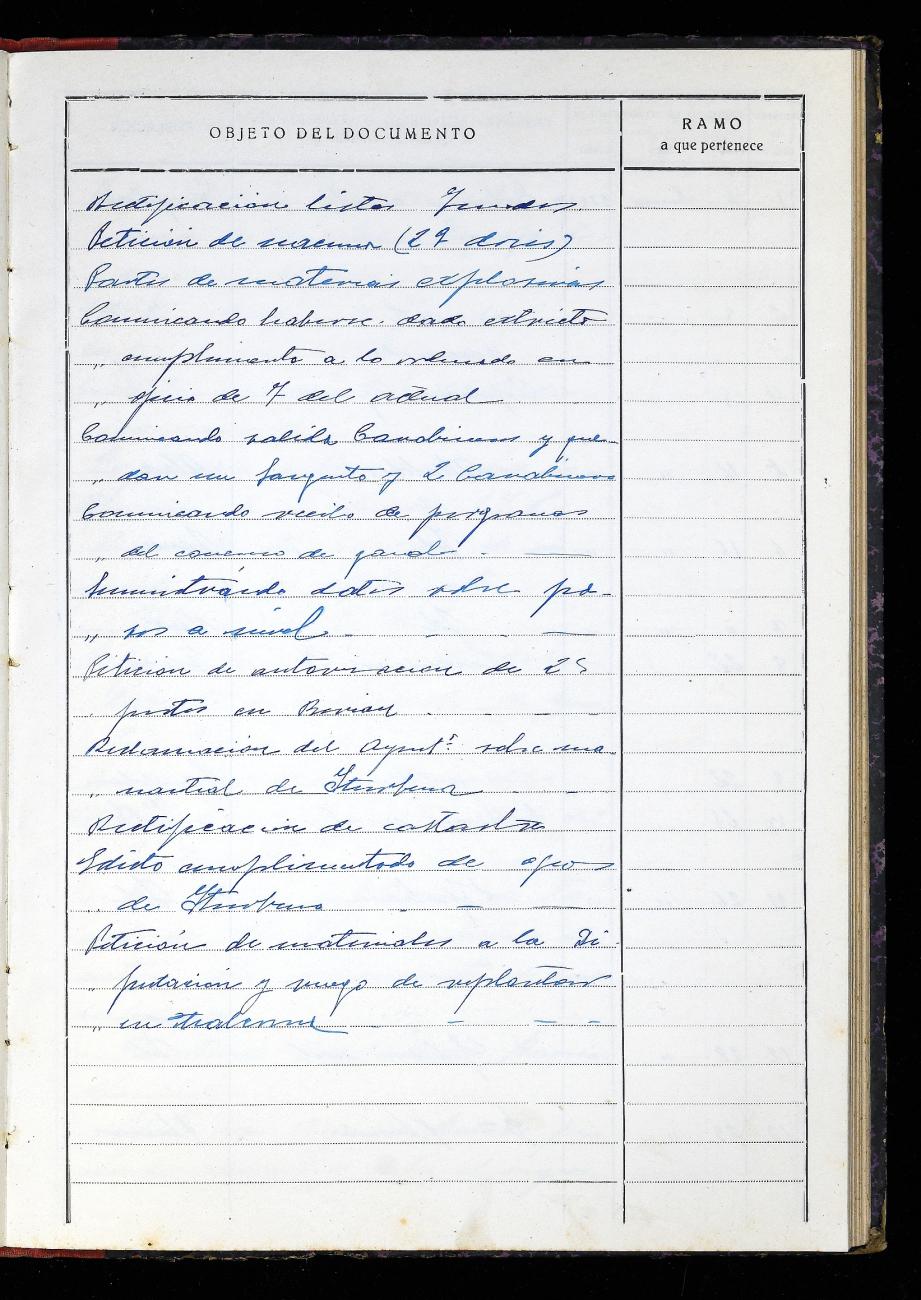 OBJETO DEL DOCUMENTO
RAMO
a que pertenece
Rectificación listas
Petición de vacuna (29 dosis)
Partes de materias explosivas
Comunicando haberse dado estricto
„ cumplimento a lo ordenado en
„ oficio de 7 del actual
Comunicando salida Carabineros y que-
„ dan un Sargento y 2 Carabineros
Comunicando recibo de programas
„ del concurso de ganado
Suministrando datos sobre pa-
„ sos a nivel
Petición de autorización de 25
postes en
Reclamación del Ayunt.º sobre ma-
„ nantial de
Rectificación de catastro
Edicto cumplimentado de aguas
„ de
Petición de materiales a la Di-
„ putación y ruego de replantear
„ en